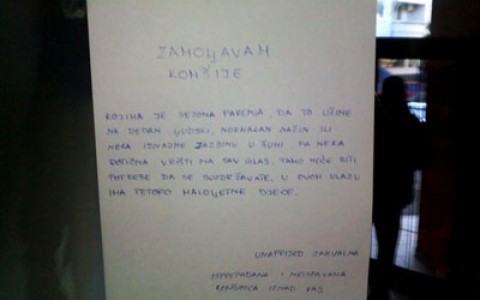 ZAMOLJAVAM
KOMŠIJE
KOJIMA JE SEZONA PARENJA, DA TO UČINE
NA JEDAN LJUDSKI, NORMALAN NAČIN ILI
NEKA IZNAĐU JAZBINU U ŠUMI PA NEKA
DOTIČNA VRIŠTI NA SAV GLAS, TAMO NEĆE BITI
POTREBE DA SE SUZDRŽAVATE. U OVOM ULAZU
IMA PETORO MALOLJETNE DJECE.
UNAPRIJED ZAHVALNA
ISPREPADANA I NEISPAVANA
KOMŠINICA IZNAD VAS